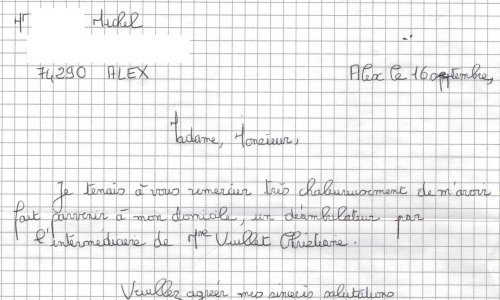 Mr Michel
74290 ALEX
Alex le 16 septembre,
Madame, Monsieur,
Je tenais à vous remercier très chaleureusement de m'avoir
fait parvenir à mon domicile, un déambulateur par
l'intermédiaire de Mme Vuillet Christiane.
Veuillez agréer mes sincères salutations